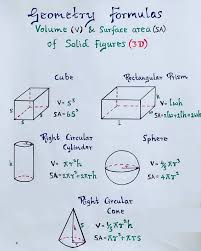 Geometry Formulas
Volume (V) & Surface area (SA)
of Solid Figures (3D)
Cube
V = S³
SA = 6S²
S
S
S
Rectangular Prism
V = lwh
SA = 2lw+2lh+2wh
Right Circular
Cylinder
V = πr²h
SA = 2πr²+2πrh
h
Sphere
V = 4/3 πr³
SA = 4πr²
Right Circular
Cone
V = 1/3 πr²h
SA = πr²+πrs